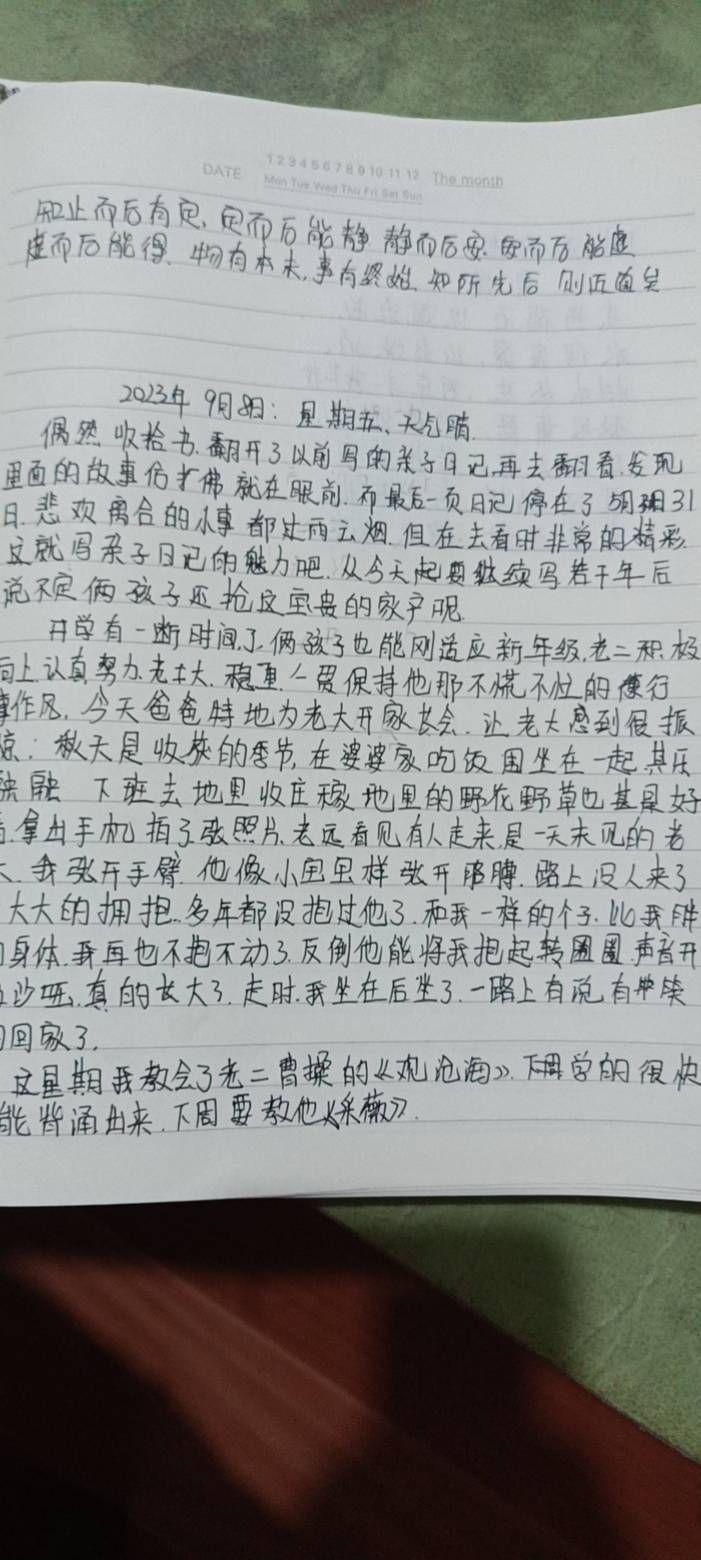 DATE 1 2 3 4 5 6 7 8 9 10 11 12 The month
Mon Tue Wed Thu Fri Sat Sun
知止而后有定、定而后能静 静而后安.安而后能虑
虑而后能得、物有本末,事有终始、知所先后 则近道矣
2023年 9月8日: 星期五、天气晴.
偶然收拾书.翻开了以前写的亲子日记,再去翻看.发现
里面的故事仿佛就在眼前.而最后一页日记停在了 31
日.悲欢离合的小事都过雨云烟.但在去看时非常的精彩.
这就写亲子日记的魅力吧.从今天起要继续写若干年后
说不定俩孩子还抢这宝贵的家产呢.
开学有一断时间了,俩孩子也能刚适应新年级.老二积极
向上认真努力.老大.稳重.一贯保持他那不慌不忙的行
事作风.今天爸爸特地为老大开家长会.让老大感到很振
惊:秋天是收获的季节,在婆婆家吃饭围坐在一起其乐
融融 下班去地里收庄稼.地里的野花野草也甚是好
看.拿出手机拍了张照片.老远看见有人走来.是一天未见的老
大.我张开手臂.他像小宝宝样张开胳膊.路上没人来了
大大的拥抱.多年都没抱过他了.和我一样的个子.比我胖
的身体.我再也不抱不动了.反倒他能将我抱起转圈圈.声音开
沙哑.真的长大了.走时.我坐在后坐了.一路上有说有笑
的回家了.
这星期我教会了老二曹操的《观沧海》.学的很快
能背诵出来.下周要教他《采薇》.